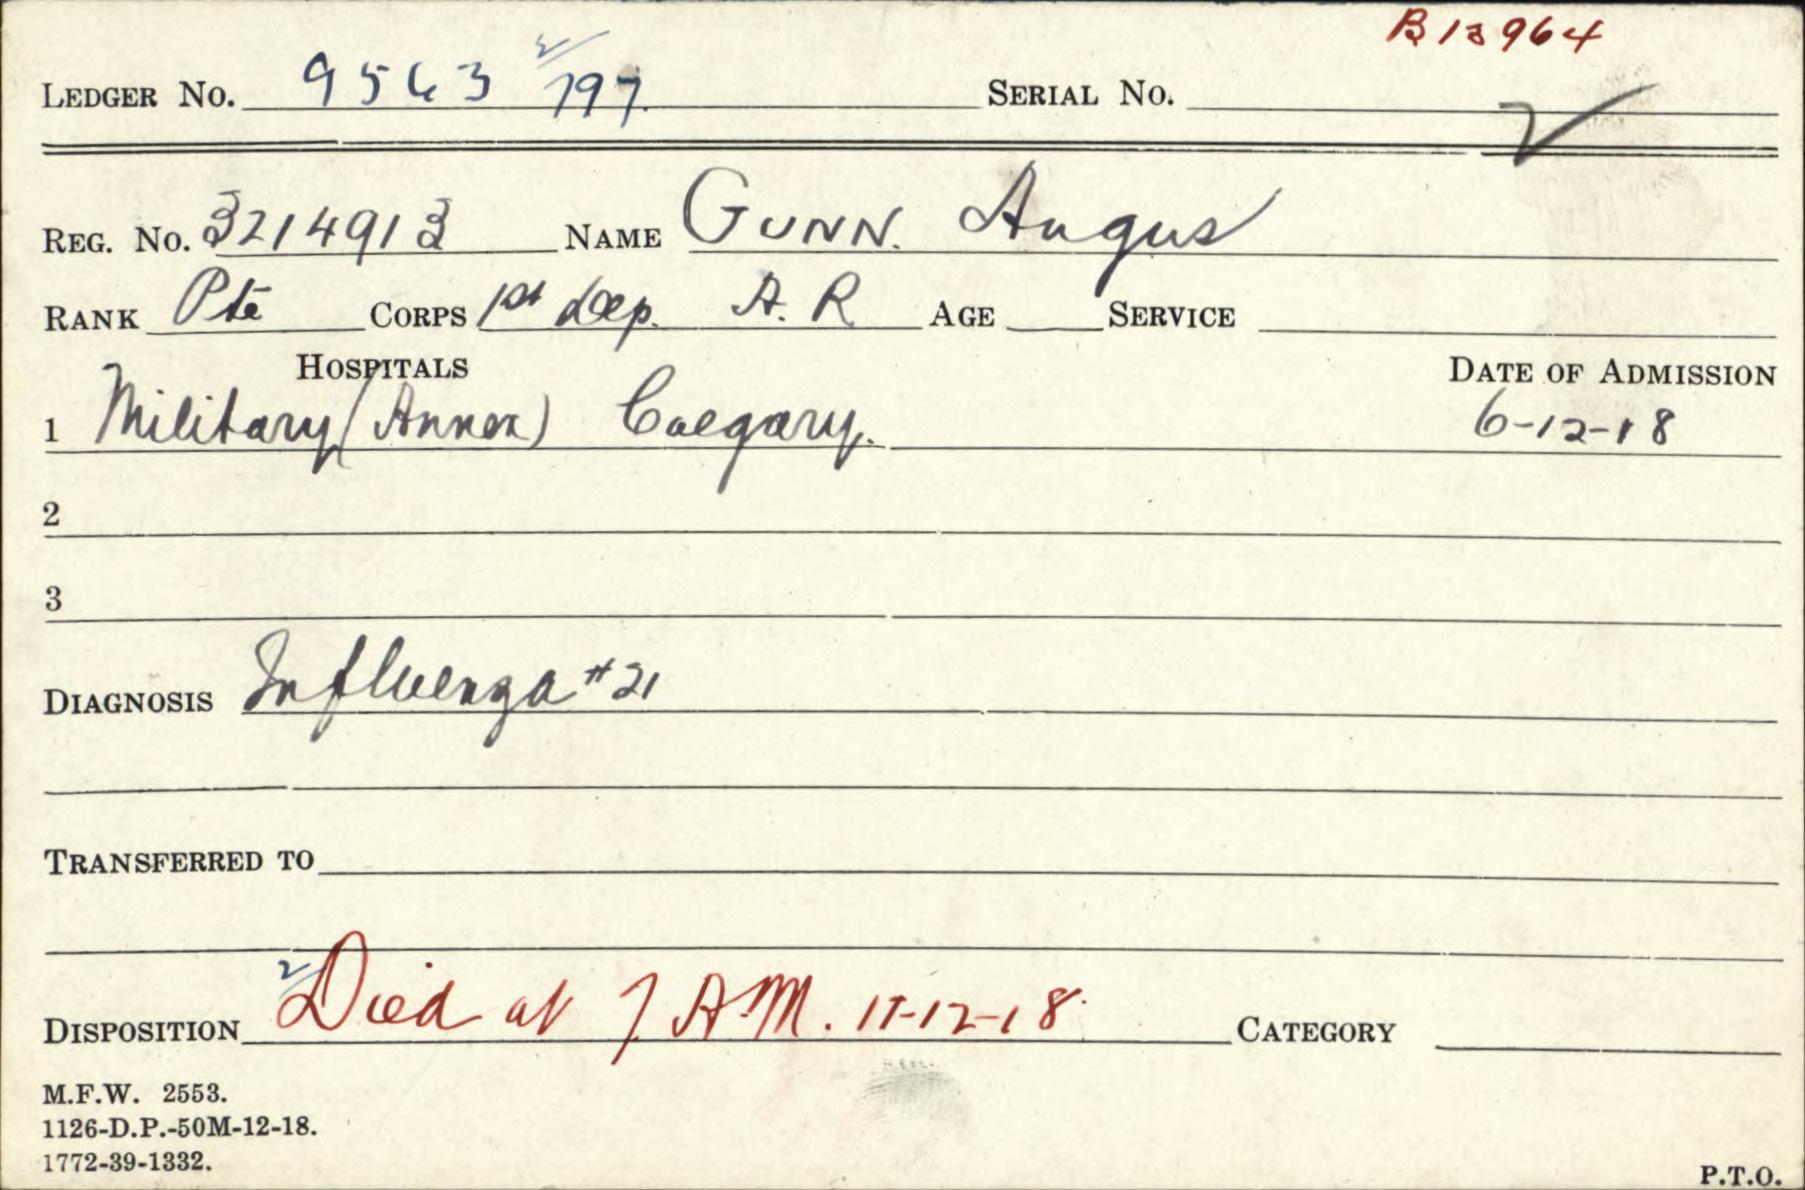 B13964
LEDGER NO. 9563 2/797 SERIAL NO.
REG. NO. 3214913 NAME GUNN. Angus
RANK Pte CORPS 1st Dep. A. R AGE SERVICE
HOSPITALS DATE OF ADMISSION
1 Military (Annex) Calgary. 6-12-18
2
3
DIAGNOSIS Influenza #21
TRANSFERRED TO
DISPOSITION Died at 7 A.M. 11-12-18 CATEGORY
M.F.W. 2553.
1126-D.P.-50M-12-18.
1772-39-1332.
P.T.O.